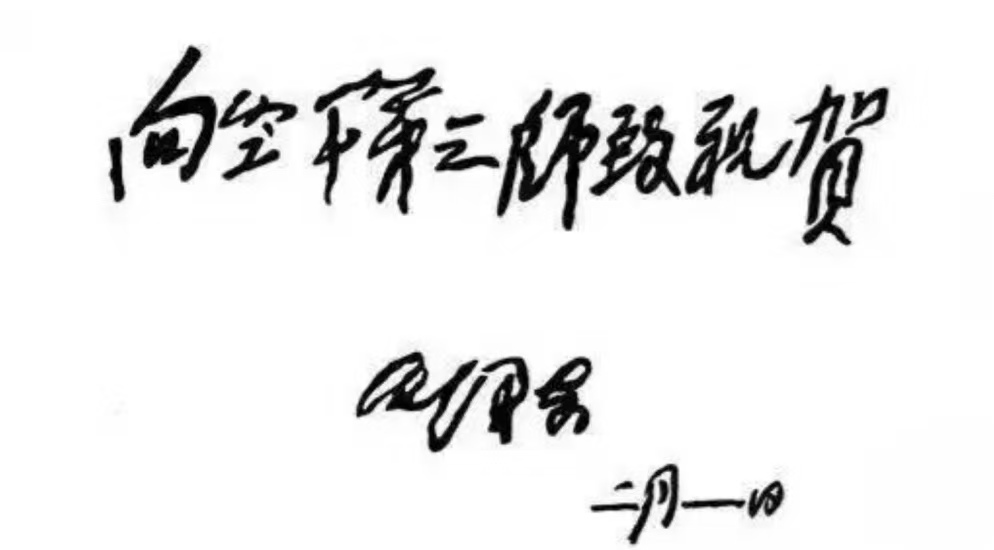 向空军第三师致祝贺
毛泽东
二月一日